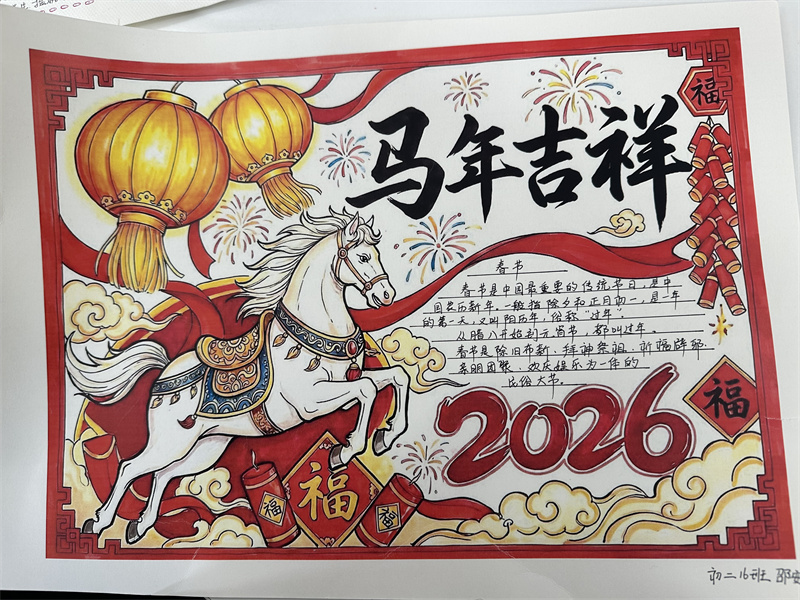 马年吉祥
福
春节
春节是中国最重要的传统节日,是中
国农历新年。一般指除夕和正月初一,是一年
的第一天,又叫阴历年,俗称“过年”
从腊八开始到元宵节,都叫过年。
春节是除旧布新、拜神祭祖、祈福辟邪、
亲朋团聚、欢庆娱乐为一体的
民俗大节。
2026
福
福
福
福
初二16班 邵